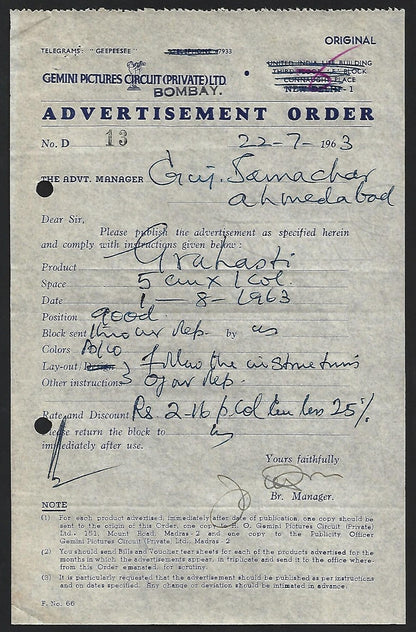 ORIGINAL
TELEGRAMS: "GEEPEESEE" 7933
UNITED INDIA LIFE BUILDING
THIRD FLOOR, 'F' BLOCK
CONNAUGHT PLACE
NEW DELHI-1
GEMINI PICTURES CIRCUIT (PRIVATE) LTD.
BOMBAY.
ADVERTISEMENT ORDER
No. D 13 22-7-1963
THE ADVT. MANAGER Guj. Samachar
Ahmedabad
Dear Sir,
Please publish the advertisement as specified herein
and comply with instructions given below :
Product Grahasti
Space 5 cm x 1 Col.
Date 1-8-1963
Position good
Block sent thro our Rep. by us
Colors
Lay-out Follow the instructions
Other instructions of our Rep.
Rate and Discount Rs 2-16 p. Col less 25%
Please return the block to us
immediately after use.
Yours faithfully
Br. Manager.
NOTE
(1) For each product advertised, immediately after date of publication, one copy should be
sent to the origin of this Order, one copy to H. O. Gemini Pictures Circuit (Private)
Ltd., 151, Mount Road, Madras - 2 and one copy to the Publicity Officer
Gemini Pictures Circuit (Private) Ltd., Madras - 2
(2) You should send Bills and Voucher tear sheets for each of the products advertised for the
months in which the advertisements appear, in triplicate and send it to the office where-
from this Order emanated, for scrutiny.
(3) It is particularly requested that the advertisement should be published as per instructions
and on dates specified. Any change or deviation should be intimated in advance.
F. No. 66